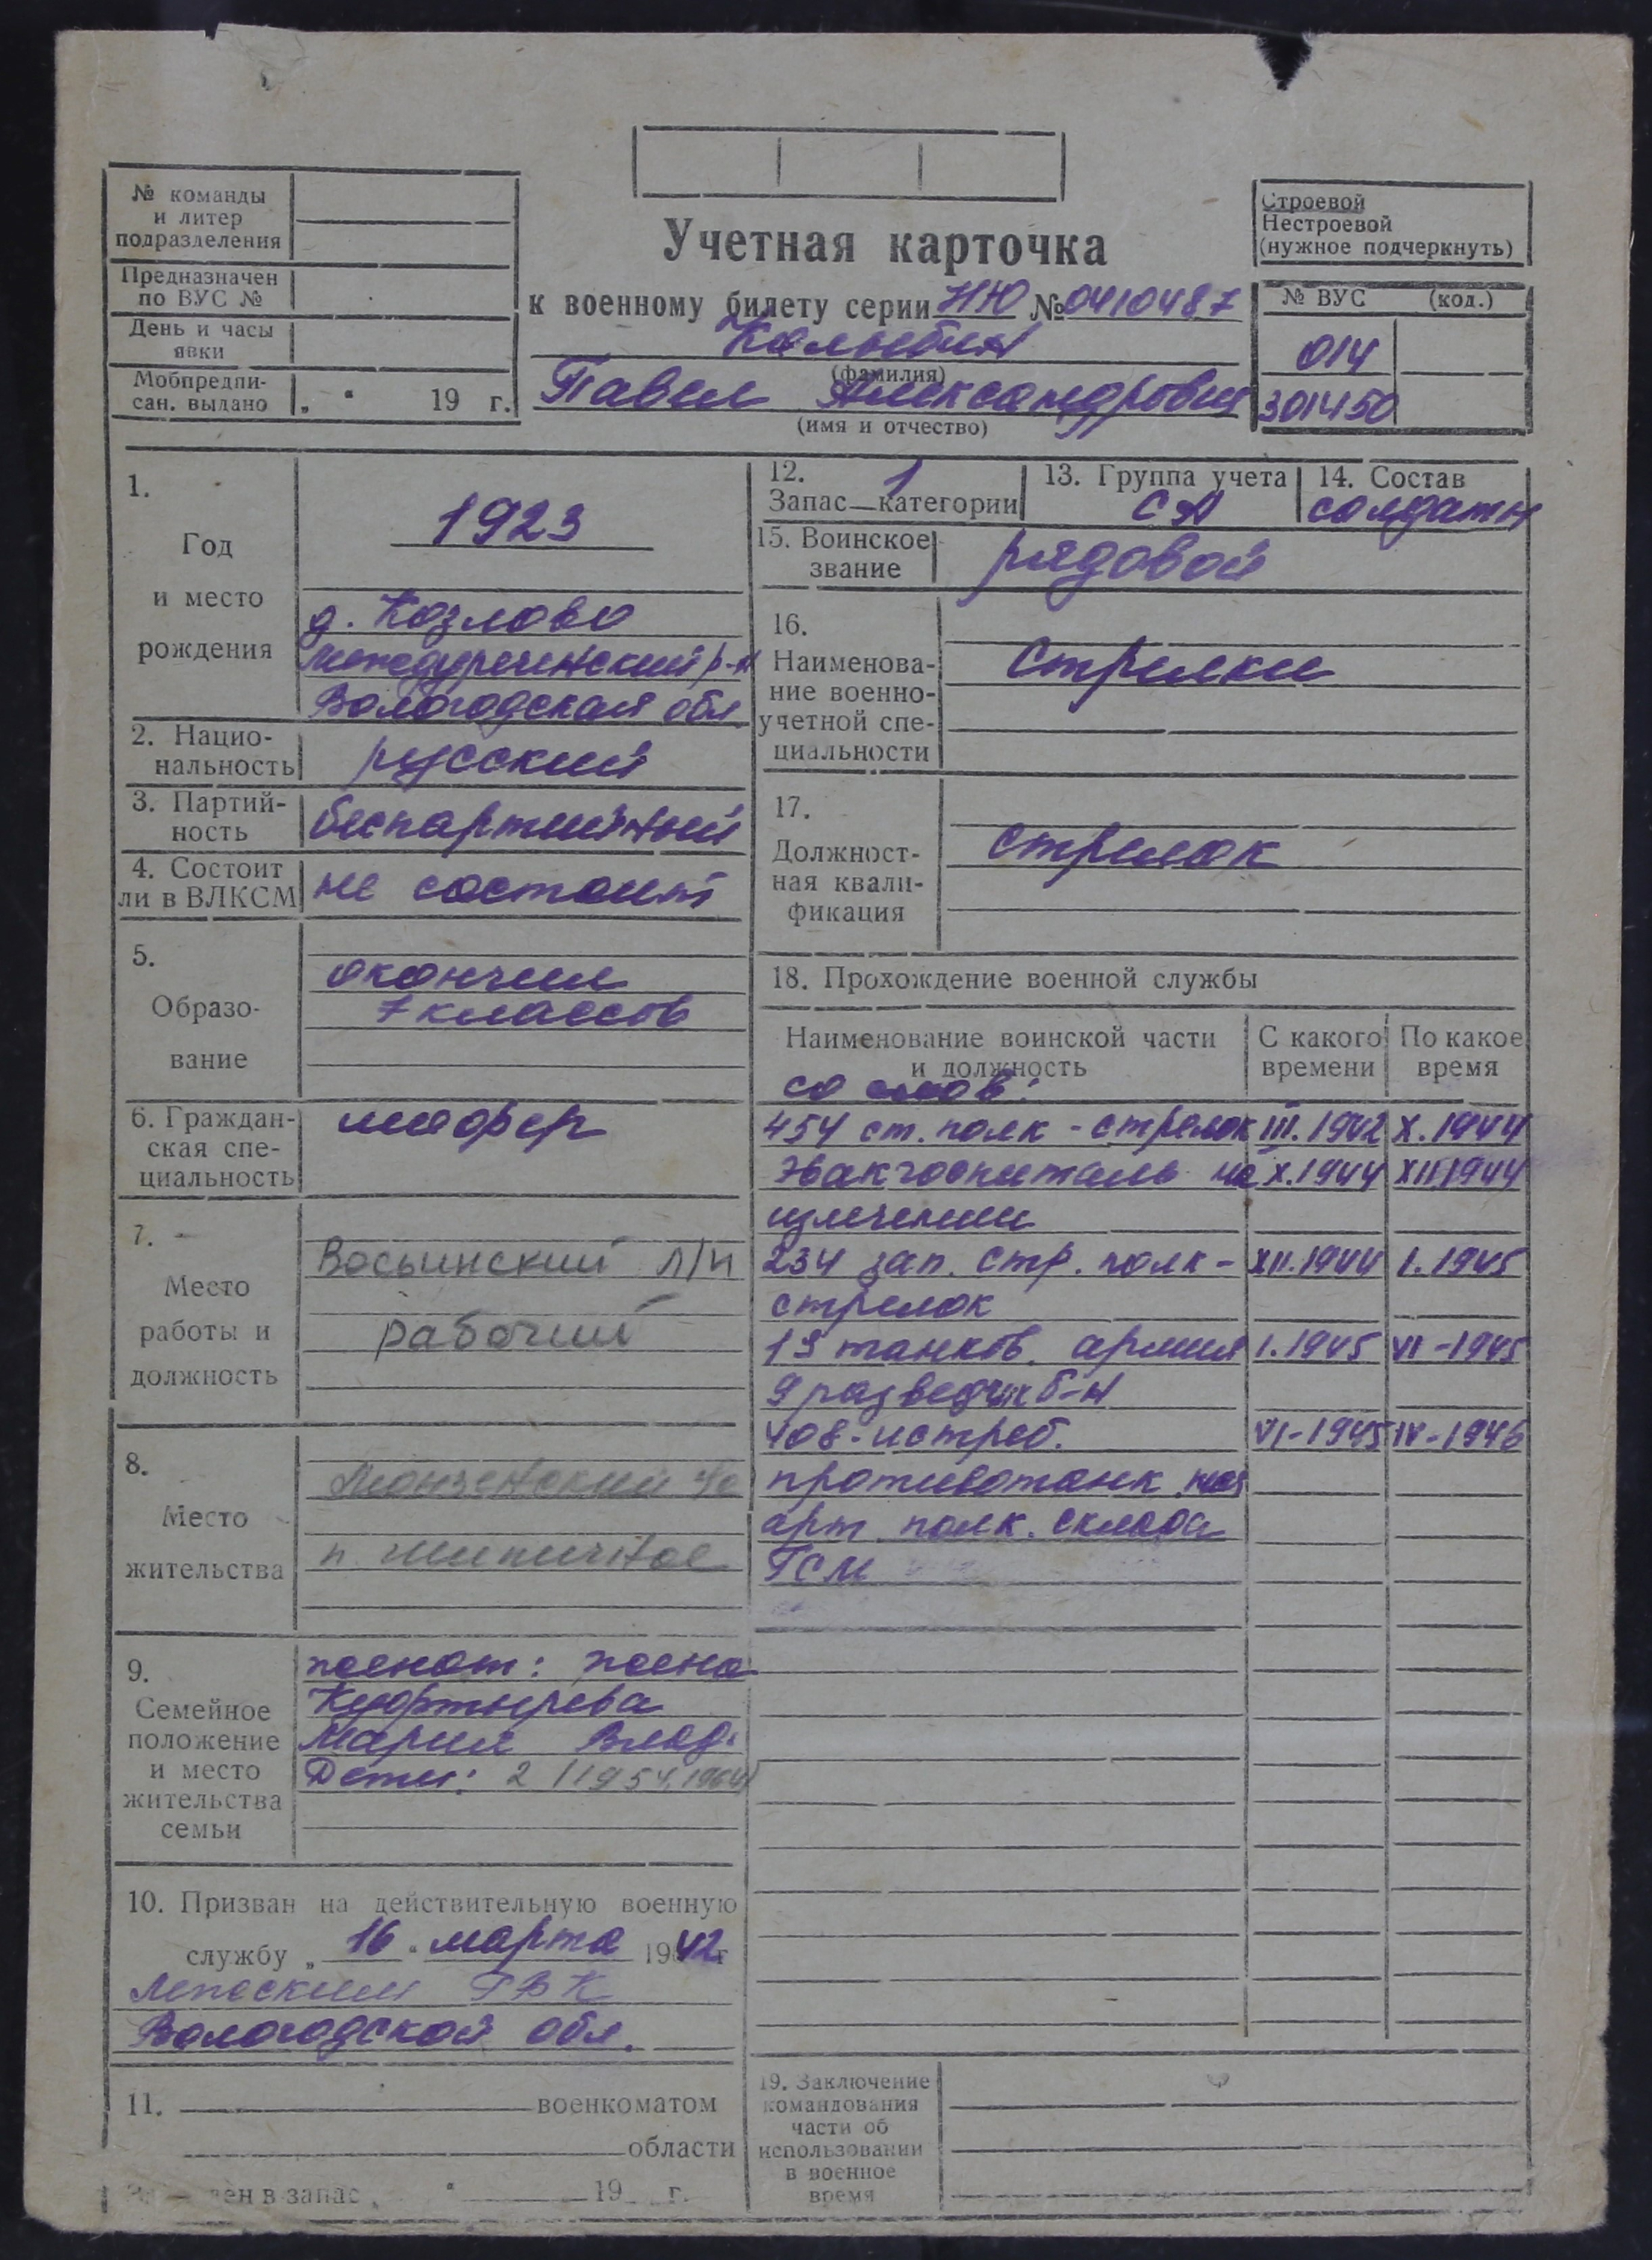 № команды
и литер
подразделения
Предназначен
по ВУС №
День и часы
явки
Мобпредпи-
сан. выдано „ “ 19 г.
Учетная карточка
к военному билету серии НЮ № 0410487
(фамилия)
Павел Александрович
(имя и отчество)
Строевой
Нестроевой
(нужное подчеркнуть)
№ ВУС (код.)
014
301450
1.
Год
и место
рождения
1923
д. Козлово
Междуреченский р-н
Вологодская обл
2. Нацио-
нальность
русский
3. Партий-
ность
беспартийный
4. Состоит
ли в ВЛКСМ
не состоит
5.
Образо-
вание
окончил
7 классов
6. Граждан-
ская спе-
циальность
шофер
7.
Место
работы и
должность
Восьинский л/п
рабочий
8.
Место
жительства
Монзенский
п.
9.
Семейное
положение
и место
жительства
семьи
женат: жена
Куфтырева
Мария Влад.
Дети: 2 (1954, 1964)
10. Призван на действительную военную
службу „ 16 “ марта 1942 г
ГВК
Вологодской обл.
11. военкоматом
области
ен в запас „ “ 19 г.
12. 1
Запас категории
13. Группа учета
СА
14. Состав
солдаты
15. Воинское
звание
рядовой
16.
Наименова-
ние военно-
учетной спе-
циальности
Стрелки
17.
Должност-
ная квали-
фикация
стрелок
18. Прохождение военной службы
Наименование воинской части
и должность
С какого
времени
По какое
время
со слов:
454 ст. полк - стрелок III.1942 X.1944
Эвакгоспиталь на X.1944 XII.1944
излечении
234 зап. стр. полк - XII.1944 I.1945
стрелок
19 танков. армия I.1945 VI-1945
9 разведчик б-н
408-истреб. VI-1945 IV-1946
противотанк.
арт. полк. склада
ГСМ
19. Заключение
командования
части об
использовании
в военное
время